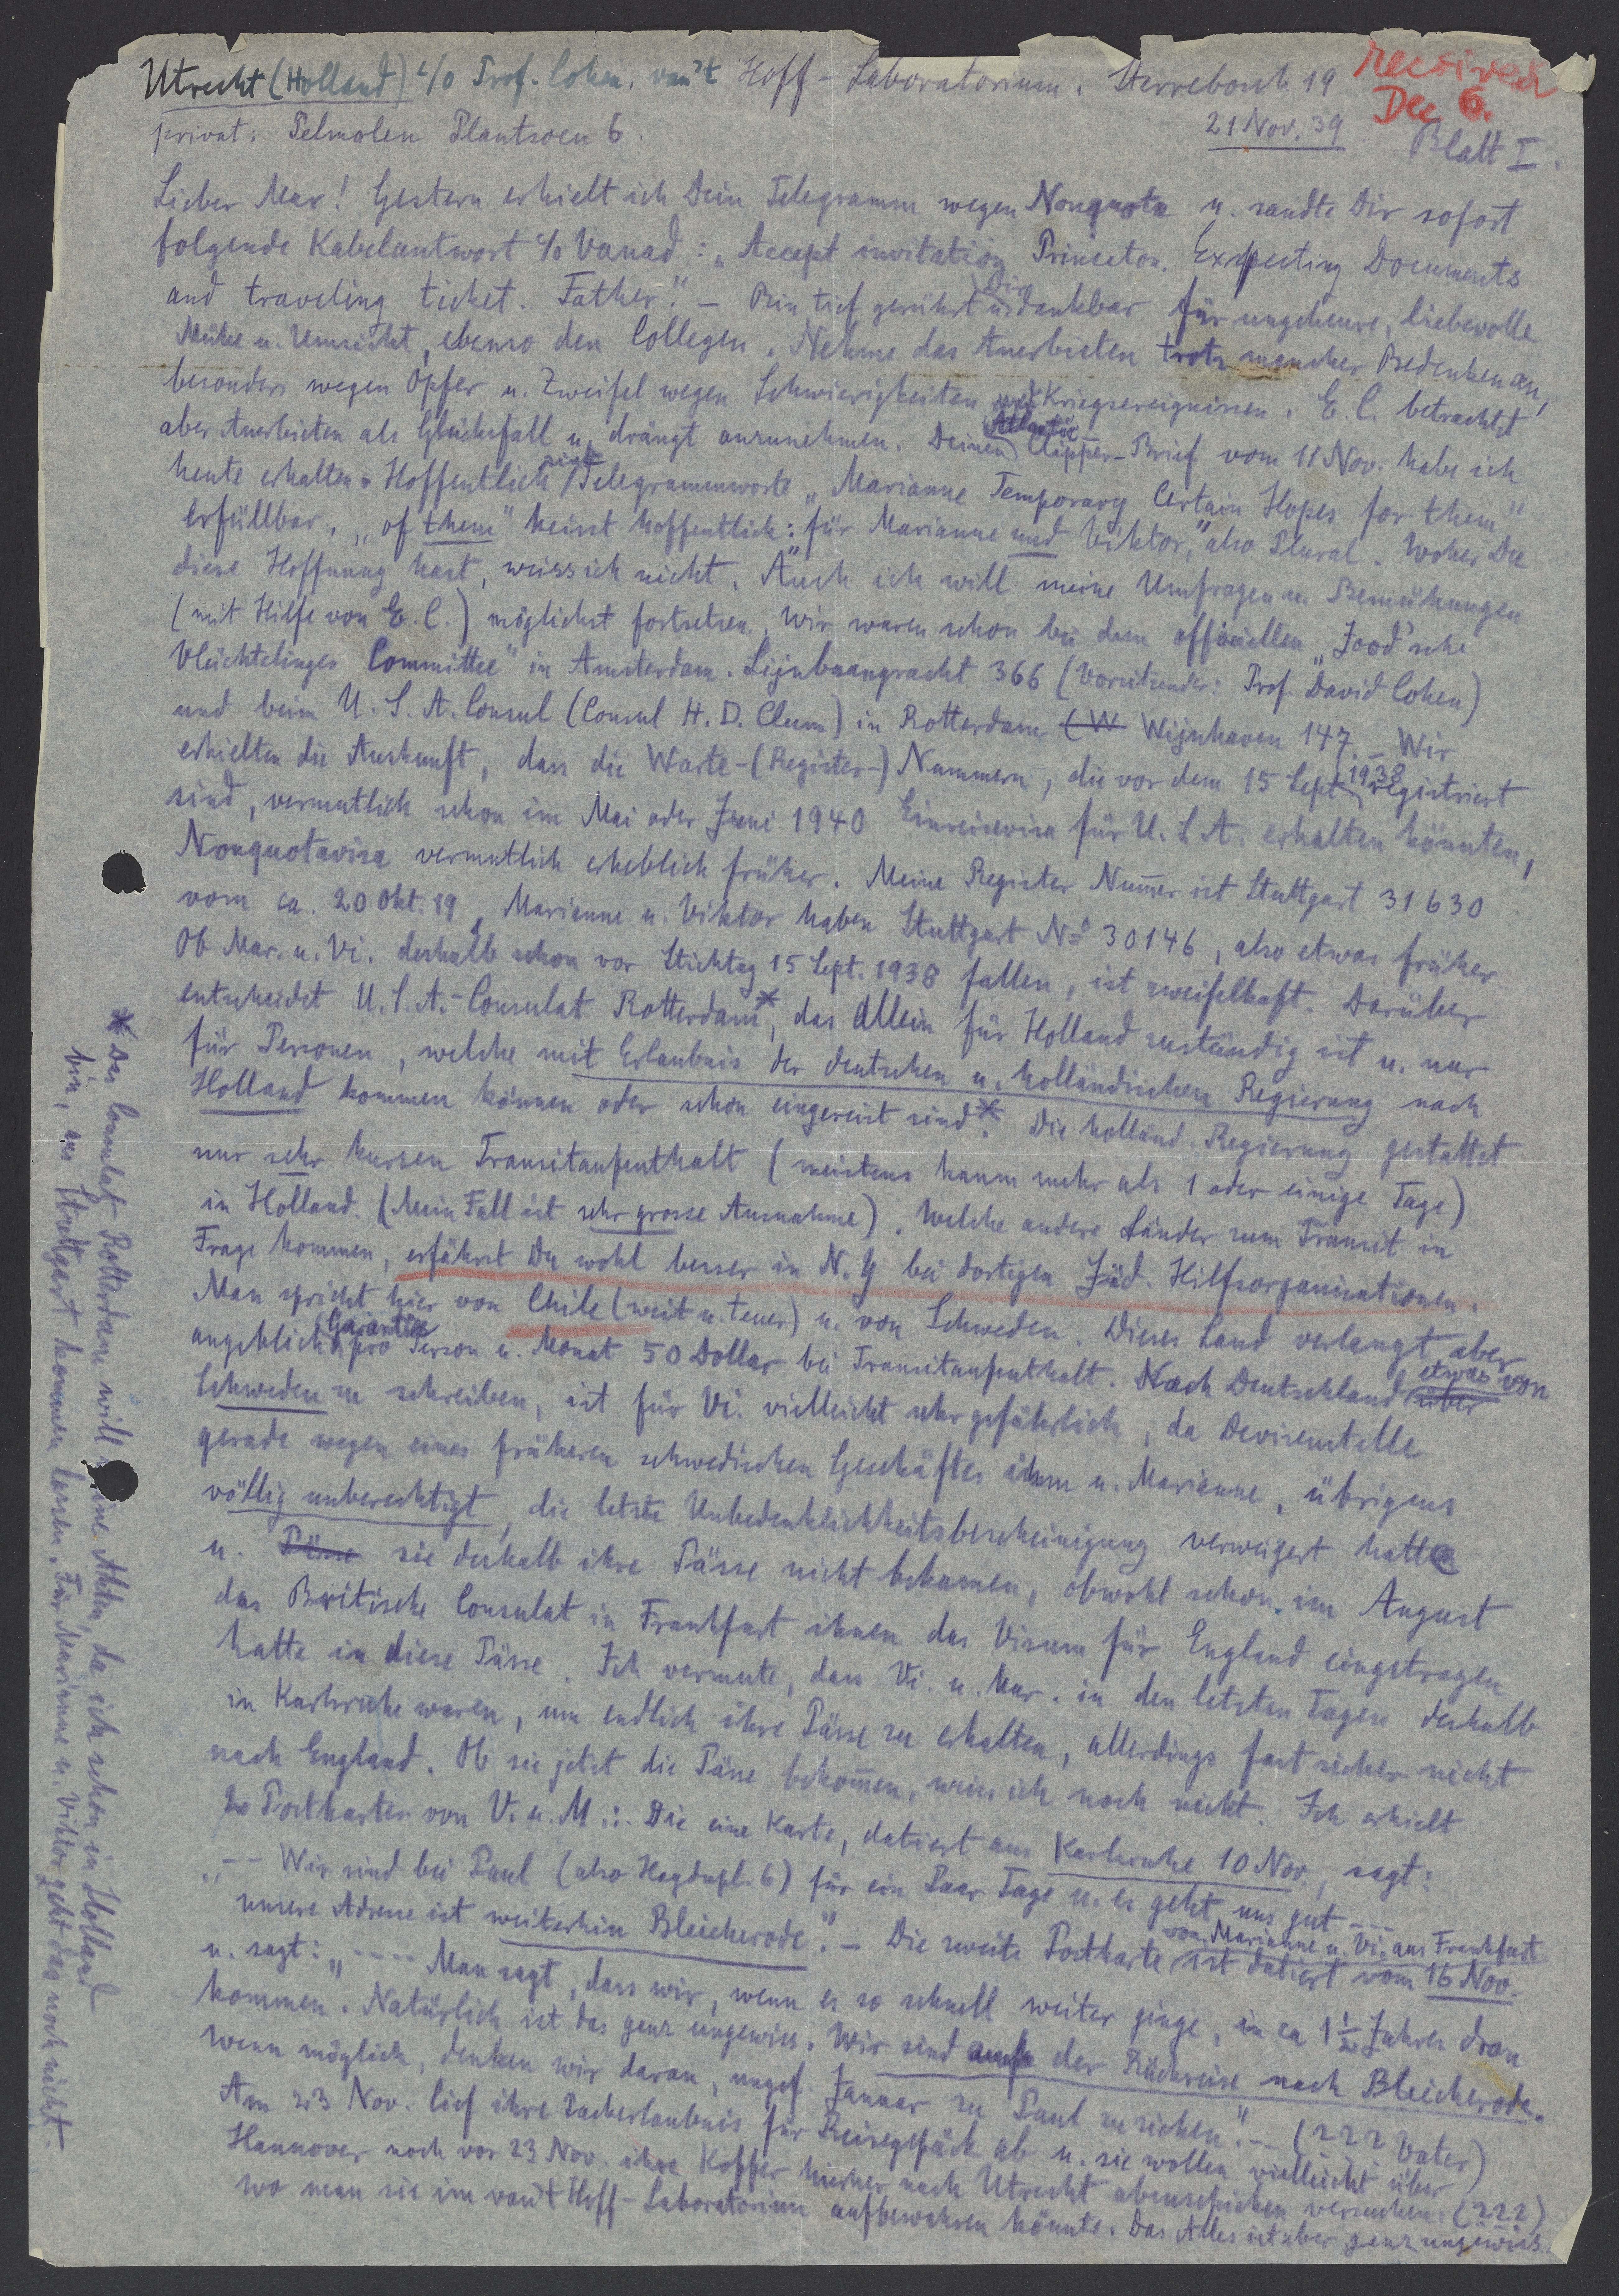 Utrecht (Holland) c/o Prof. Cohen. van't Hoff-Laboratorium. Sterrebosch 19
received
Dec 6.
privat: Pelmolen Plantsoen 6.
21 Nov. 39
Blatt I.
Lieber Max! Gestern erhielt ich Dein Telegramm wegen Nonquota u. sandte Dir sofort
folgende Kabelantwort c/o Vanad: "Accept invitation Princeton. Expecting Documents
and traveling ticket. Father." – Bin tief gerührt u. Dir dankbar für ungeheure, liebevolle
Mühe u. Umsicht, ebenso den Collegen. Nehme das Anerbieten trotz mancher Bedenken an,
besonders wegen Opfer u. Zweifel wegen Schwierigkeiten und Kriegsereignissen. E. C. betrachtet
aber Anerbieten als Glücksfall u. drängt anzunehmen. Deinen Atlantic Clipper-Brief vom 11 Nov. habe ich
heute erhalten. Hoffentlich sind Telegrammworte "Marianne Temporary Certain Hopes for them"
erfüllbar, "of them" heisst hoffentlich: "für Marianne und Viktor," also Plural. Woher Du
diese Hoffnung hast, weiss ich nicht. Auch ich will meine Umfragen u. Bemühungen
(mit Hilfe von E. C.) möglichst fortsetzen. Wir waren schon bei dem officiellen "Jood'sche
Vluchtelinges Committee" in Amsterdam. Lijnbaangracht 366 (Vorsitzender: Prof. David Cohen)
und beim U. S. A. Consul (Consul H. D. Clum) in Rotterdam (W Wijnhaven 147. – Wir
erhielten die Auskunft, dass die Warte-(Register-) Nummern, die vor dem 15 Sept. 1938 registriert
sind, vermutlich schon im Mai oder Juni 1940 Einreisevisa für U. S. A. erhalten könnten,
Nonquotavisa vermutlich erheblich früher. Meine Register Nummer ist Stuttgart 31630
vom ca. 20 Okt. 19, Marianne u. Viktor haben Stuttgart No 30146, also etwas früher
Ob Mar. u. Vi. deshalb schon vor Stichtag 15 Sept. 1938 fallen, ist zweifelhaft. Darüber
entscheidet U. S. A.-Consulat Rotterdam*, das allein für Holland zuständig ist u. nur
für Personen, welche mit Erlaubnis der deutschen u. holländischen Regierung nach
Holland kommen können oder schon eingereist sind*. Die holländ. Regierung gestattet
nur sehr kurzen Transitaufenthalt (meistens kaum mehr als 1 oder einige Tage)
in Holland. (Mein Fall ist sehr grosse Ausnahme). Welche andere Länder zum Transit in
Frage kommen, erfährst Du wohl besser in N. Y bei dortigen Jüd. Hilfsorganisationen.
Man spricht hier von Chile (weit u. teuer) u. von Schweden. Dieses Land verlangt aber
angeblich Garantie pro Person u. Monat 50 Dollar bei Transitaufenthalt. Nach Deutschland über etwas von
Schweden zu schreiben, ist für Vi. vielleicht sehr gefährlich, da Devisenstelle
gerade wegen eines früheren schwedischen Geschäftes ihm u. Marianne, übrigens
völlig unberechtigt, die letzte Unbedenklichkeitsbescheinigung verweigert hatte
u. Pässe sie deshalb ihre Pässe nicht bekamen, obwohl schon im August
das Britische Consulat in Frankfurt ihnen das Visum für England eingetragen
hatte in diese Pässe. Ich vermute, dass Vi. u. Mar. in den letzten Tagen deshalb
in Karlsruhe waren, um endlich ihre Pässe zu erhalten, allerdings fast sicher nicht
nach England. Ob sie jetzt die Pässe bekommen, weiss ich noch nicht. Ich erhielt
2 Postkarten von V. u. M.: Die eine Karte, datiert aus Karlsruhe 10 Nov., sagt:
"-- Wir sind bei Paul (also Haydnpl. 6) für ein Paar Tage u. es geht uns gut ---
unsere Adresse ist weiterhin Bleicherode." – Die zweite Postkarte von Marianne u. Vi. aus Frankfurt ist datiert vom 16 Nov.
u. sagt: "---- Man sagt, dass wir, wenn es so schnell weiter ginge, in ca 1½ Jahren dran
kommen. Natürlich ist das ganz ungewiss. Wir sind auf der Rückreise nach Bleicherode.
Wenn möglich, denken wir daran, ungef. Januar zu Paul zu ziehen." -- (??? Vater)
Am 23 Nov. lief ihre Packerlaubnis für Reisegepäck ab u. sie wollen vielleicht über
Hannover noch vor 23 Nov. ihre Koffer hierher nach Utrecht abzuschicken versuchen. (???)
wo man sie im van't Hoff-Laboratorium aufbewahren könnte. Das Alles ist aber ganz ungewiss.
* Das Consulat Rotterdam will meine Akten, da ich schon in Holland
bin, aus Stuttgart kommen lassen. Für Marianne u. Viktor geht das noch nicht.